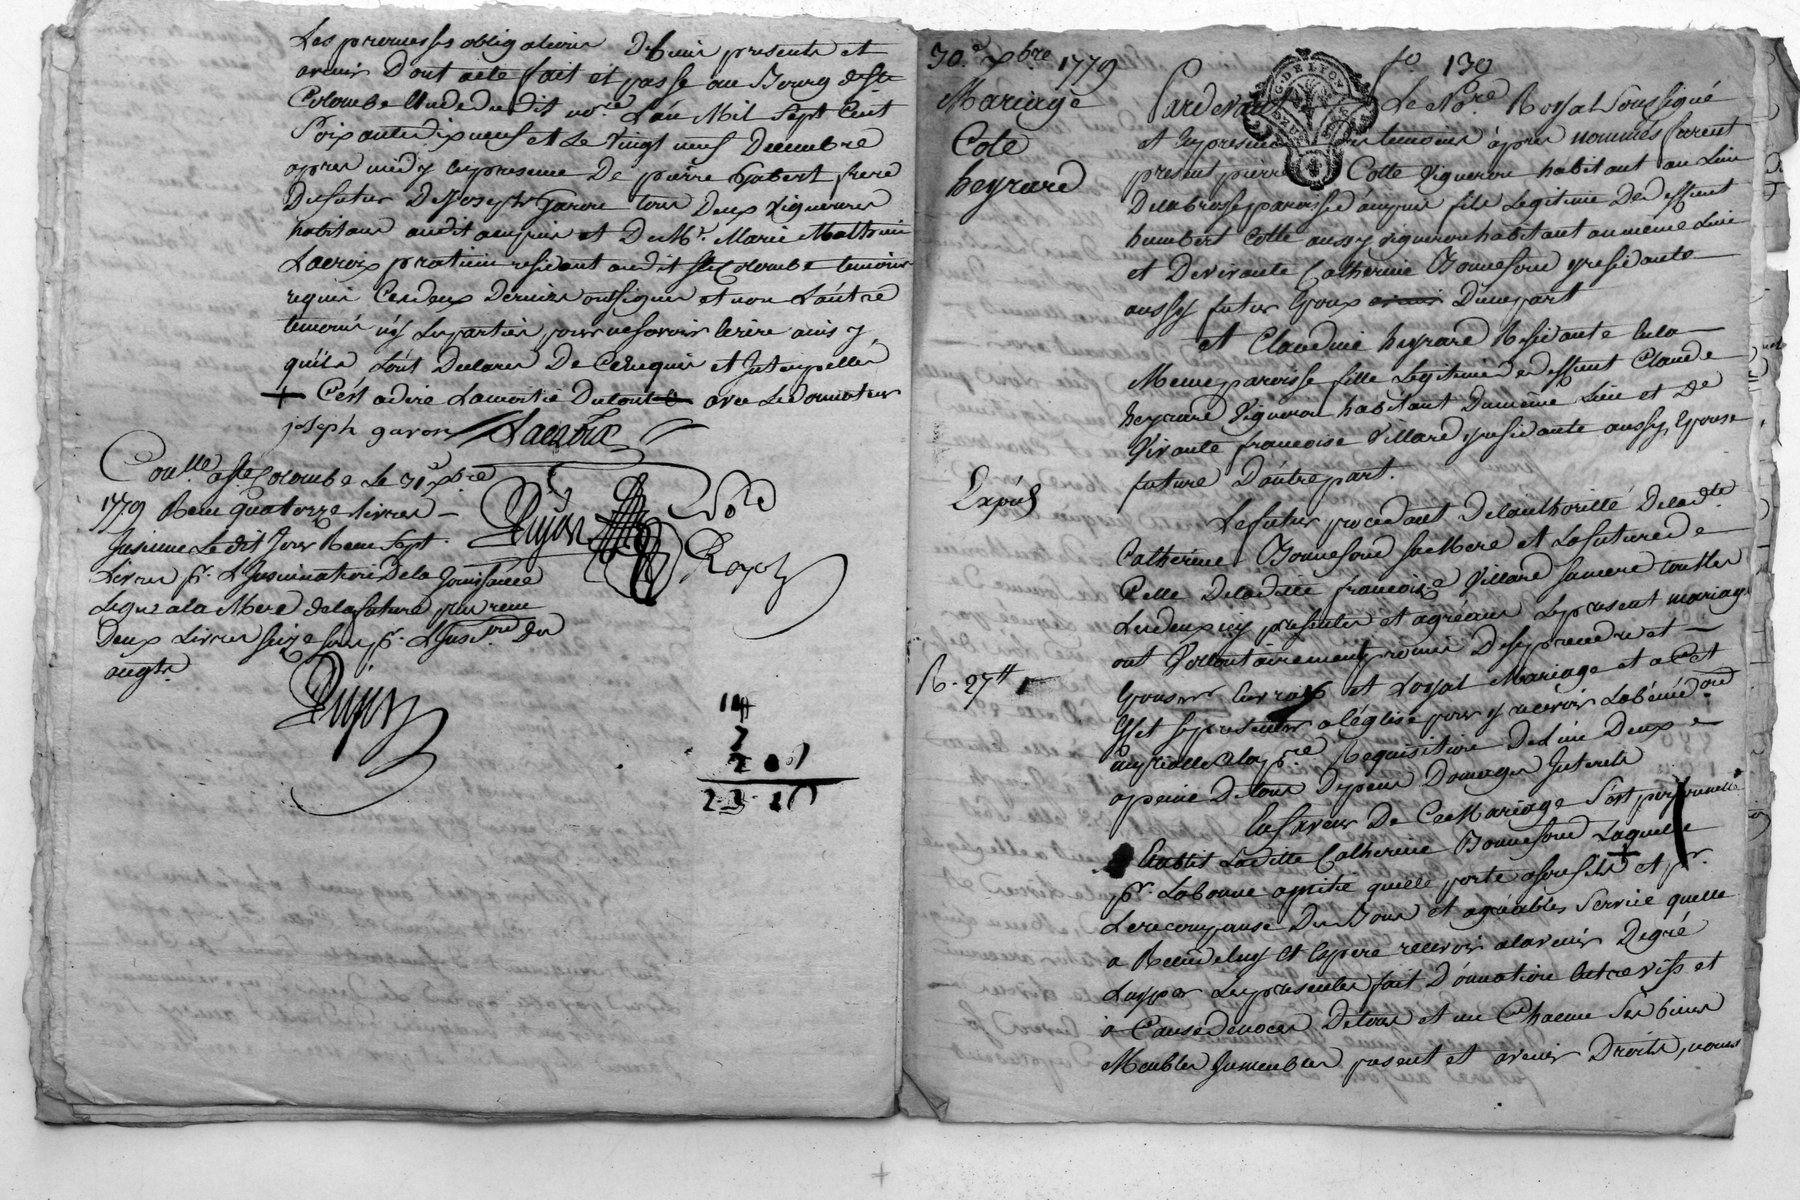 Les promesses obligations de biens presents et
avenir Dont acte fait et passé au Bourg de Ste
Colombe Etude dudit nore. L'an Mil Sept Cent
Soixante dix neuf et Le Vingt neuf Decembre
apres midy en presence De pierre Gabert frere
Dufutur De Joseph Garon tous Deux Vignerons
habitans audit ampuis et De Mr. Marie Mathieu
Lacroix praticien residant audit Ste Colombe temoins
requis Ces deux Derniers ont signés et non L'autre
temoins ny Les parties pour ne savoir Ecrire ainsi
qu'ils L'ont Declaré De Ce Enquis et Interpellés
+ C'est a dire La moitié Du tout avec Le donnateur
joseph garon Lacroix
Conllé. a Ste Colombe Le 31 xbre
1779 Recu quatorze livres
Insinué Le dit Jour Recu Sept
Livres pr. L'Insinuation De la Jouissance
Leguée a la Mere de la future plus recu
Deux Livres Seize sous pr. L'Insion du
augt.
Dujon Nore
Royal
Dujon
14
7
2 16
23 16
30e. xbre 1779
Mariage
Cote
heyrard
Expéd
R. 27tt
G. DE LYON
DEUX SOLS
fo 139
Pardevant Le Nore Royal Soussigné
et En presence des temoins après nommés furent
present pierre Cotte Vigneron habitant au Lieu
De la brosse paroisse d'ampuis fils Legitime De deffunt
humbert Cotte aussy vigneron habitant au même Lieu
et De vivante Catherine Bonnefond y residante
aussy futur Epoux avenir D'une part
et Claudine heyrard Residante En la
Meme paroisse fille Legitime De deffunt Claude
heyrard Vigneron habitant Du même Lieu et De
Vivante francoise Villard y residante aussy, Epouse
future D'autre part.
Le futur procedant De l'authorité De ladte.
Catherine Bonnefond Sa Mere et La future de
Celle De laditte francoise Villard Sa mere touttes
Les deux icy presentes et agréans Le present mariage
ont Vollontairement promis De se prendre et
Epouser En vray et Loyal Mariage et a Cet
Effet se presenter a l'église pour y recevoir La bénédon
Nuptialle a La pre. Requisition De L'un D'eux
a peine De tous Depens Domages Interets
En faveur De Ce Mariage S'est personnelle
Etablit Laditte Catherine Bonnefond Laquelle +
pr. La bonne amitié quelle porte a son fils et pr.
Le recompanser Des Bons et agréables Service quelle
a Recu de luy Et Espere recevoir a l'avenir De gré
Luy par Les presentes fait D'onnation Entre vifs et
a Cause de noces De tous et un Chacun Ses biens
Meubles Immeubles present et avenir Droits, noms